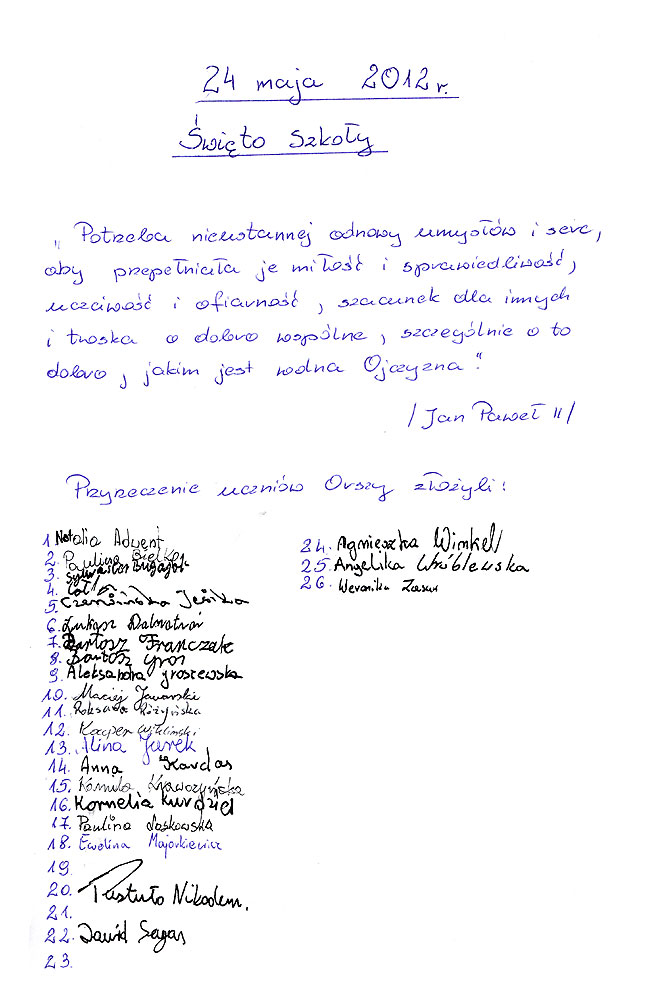 24 maja 2012 r.
Święto Szkoły
„Potrzeba nieustannej odnowy umysłów i serc,
aby przepełniała je miłość i sprawiedliwość,
uczciwość i ofiarność, szacunek dla innych
i troska o dobro wspólne, szczególnie o to
dobro, jakim jest wolna Ojczyzna".
/Jan Paweł II/
Przyrzeczenie uczniów Orszy złożyli:
1 Natalia Advent
2. Paulina
3. Sylwester
4.
5. Jesika
6. Łukasz
7. Bartosz Franczak
8. Bartosz Gros
9. Aleksandra Groszewska
10. Maciej Jaworski
11. Roksana Różyńska
12. Kacper
13. Alina Jurek
14. Anna Kardas
15. Kamila Krawczyńska
16. Kornelia Kurdziel
17. Paulina Laskowska
18. Ewelina Majorkiewicz
19.
20. Pastuło Nikodem.
21.
22. Dawid Sagan
23.
24. Agnieszka Winkel
25. Angelika Wróblewska
26. Weronika